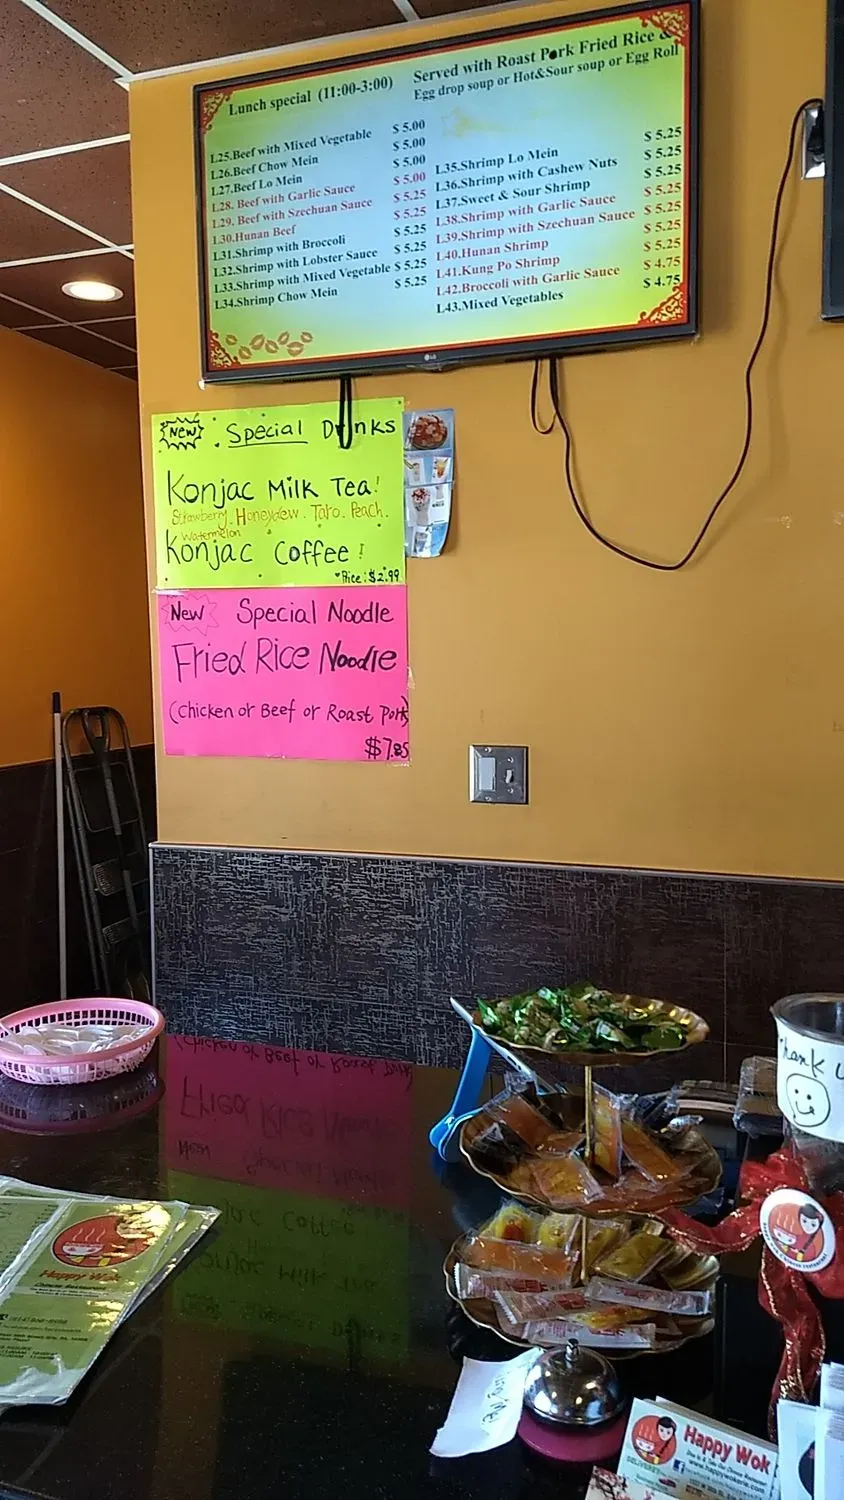 Lunch special (11:00-3:00)
Served with Roast Pork Fried Rice &
Egg drop soup or Hot&Sour soup or Egg Roll
L25.Beef with Mixed Vegetable $ 5.00
L26.Beef Chow Mein $ 5.00
L27.Beef Lo Mein $ 5.00
L28. Beef with Garlic Sauce $ 5.00
L29. Beef with Szechuan Sauce $ 5.25
L30.Hunan Beef $ 5.25
L31.Shrimp with Broccoli $ 5.25
L32.Shrimp with Lobster Sauce $ 5.25
L33.Shrimp with Mixed Vegetable $ 5.25
L34.Shrimp Chow Mein $ 5.25
L35.Shrimp Lo Mein $ 5.25
L36.Shrimp with Cashew Nuts $ 5.25
L37.Sweet & Sour Shrimp $ 5.25
L38.Shrimp with Garlic Sauce $ 5.25
L39.Shrimp with Szechuan Sauce $ 5.25
L40.Hunan Shrimp $ 5.25
L41.Kung Po Shrimp $ 5.25
L42.Broccoli with Garlic Sauce $ 4.75
L43.Mixed Vegetables $ 4.75
LG
New Special Drinks
Konjac Milk Tea!
Strawberry. Honeydew. Taro. Peach.
Watermelon
Konjac Coffee!
Price: $2.99
New Special Noodle
Fried Rice Noodle
(Chicken or Beef or Roast Pork)
$7.85
Thank U
Happy Wok
Chinese Restaurant
Happy Wok
DELIVERY